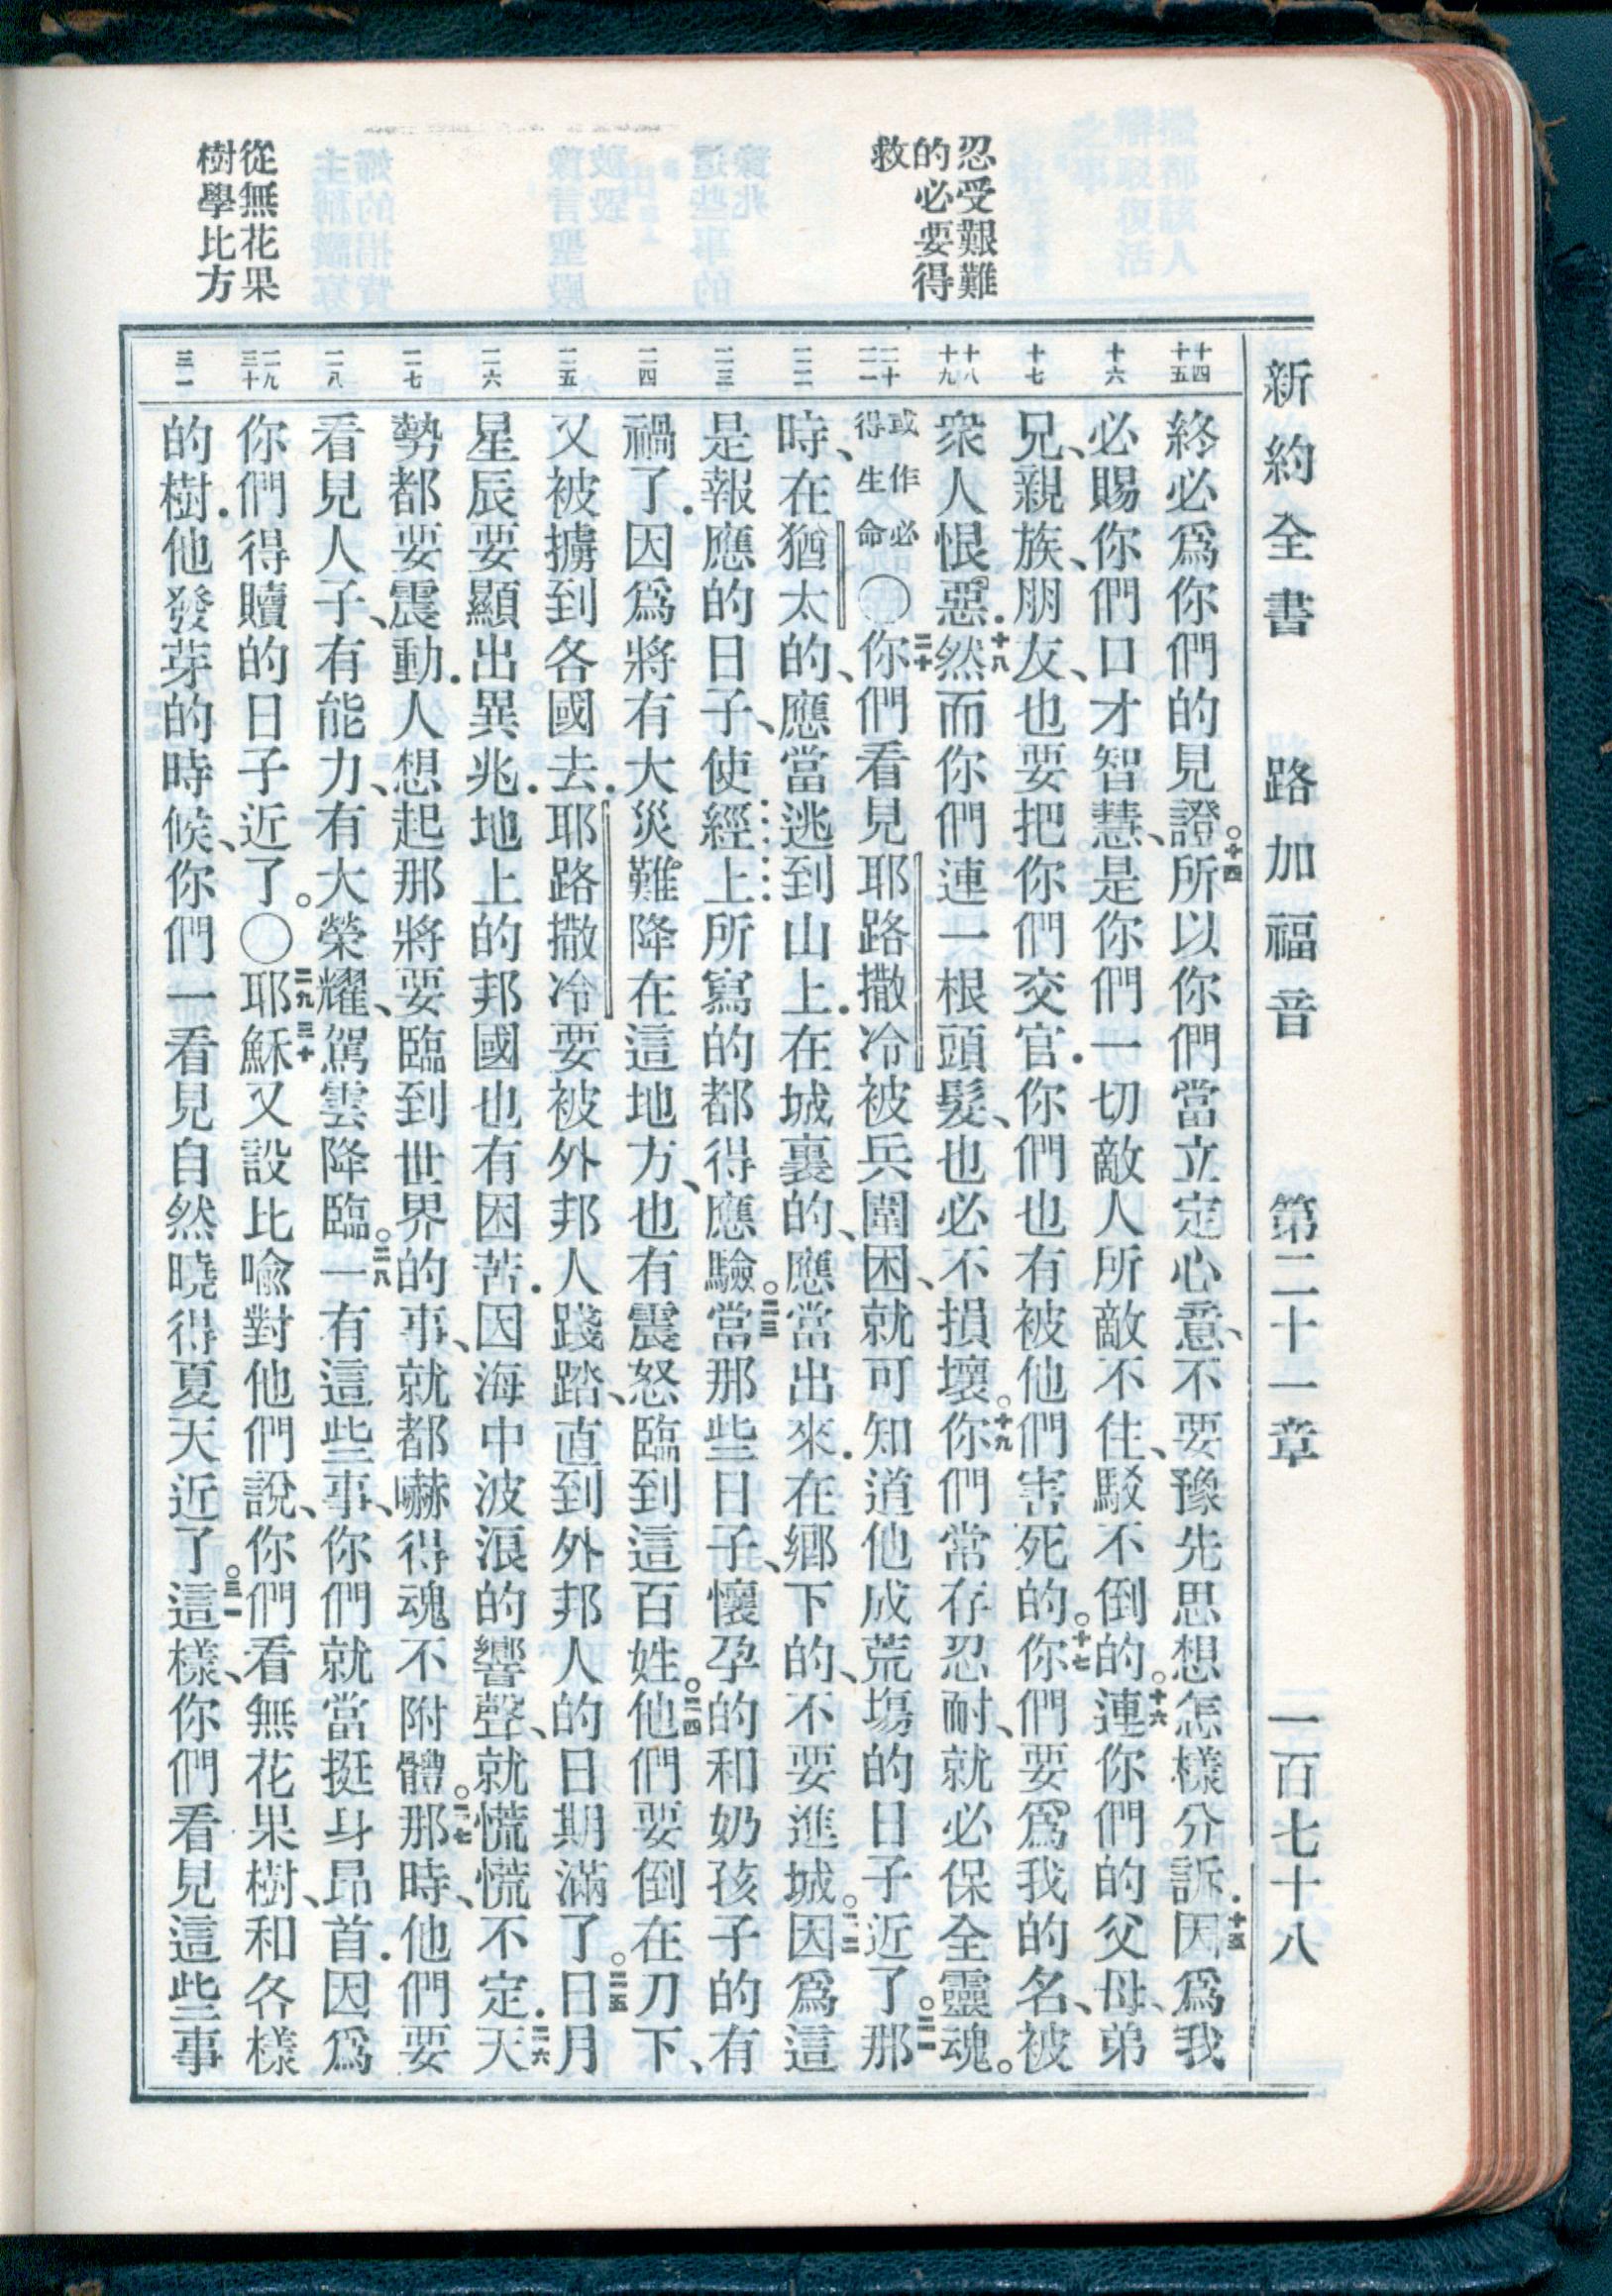 新約全書　路加福音　第二十一章　一百七十八
忍受艱難
的必要得
救
從無花果
樹學比方
十四
十五
十六
十七
十八
十九
二十
二一
二二
二三
二四
二五
二六
二七
二八
二九
三十
三一
終必爲你們的見證。十四所以你們當立定心意、不要豫先思想怎樣分訴．十五因爲我
必賜你們口才智慧、是你們一切敵人所敵不住、駁不倒的。十六連你們的父母、弟
兄、親族、朋友、也要把你們交官．你們也有被他們害死的。十七你們要爲我的名、被
衆人恨惡．十八然而你們連一根頭髮、也必不損壞。十九你們常存忍耐、就必保全靈魂。
或作必得生命〇二十你們看見耶路撒冷被兵圍困、就可知道他成荒塲的日子近了。二一那
時、在猶太的、應當逃到山上．在城裏的、應當出來．在鄉下的、不要進城。二二因爲這
是報應的日子、使經上所寫的都得應驗。二三當那些日子、懷孕的和奶孩子的有
禍了．因爲將有大災難降在這地方、也有震怒臨到這百姓。二四他們要倒在刀下、
又被擄到各國去．耶路撒冷要被外邦人踐踏、直到外邦人的日期滿了。二五日月
星辰要顯出異兆．地上的邦國也有困苦．因海中波浪的響聲、就慌慌不定．二六天
勢都要震動．人想起那將要臨到世界的事、就都嚇得魂不附體。二七那時、他們要
看見人子、有能力、有大榮耀、駕雲降臨。二八一有這些事、你們就當挺身昂首．因爲
你們得贖的日子近了。〇二九三十耶穌又設比喩對他們說、你們看無花果樹、和各樣
的樹．他發芽的時候、你們一看見自然曉得夏天近了。三一這樣、你們看見這些事